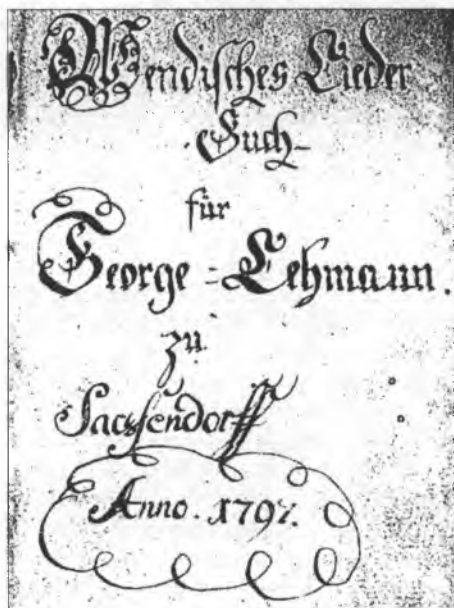 Wendisches Lieder
Buch
für
George = Lehmann.
zu
Sachsendorff
Anno. 1797.